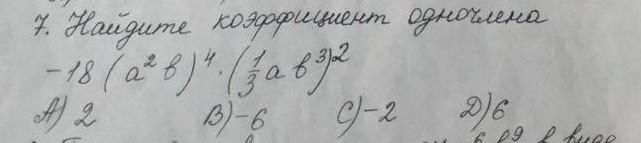 7. Найдите коэффициент одночлена
-18 (a² b)⁴ · (1/3 a b³)²
A) 2 B) -6 C) -2 D) 6